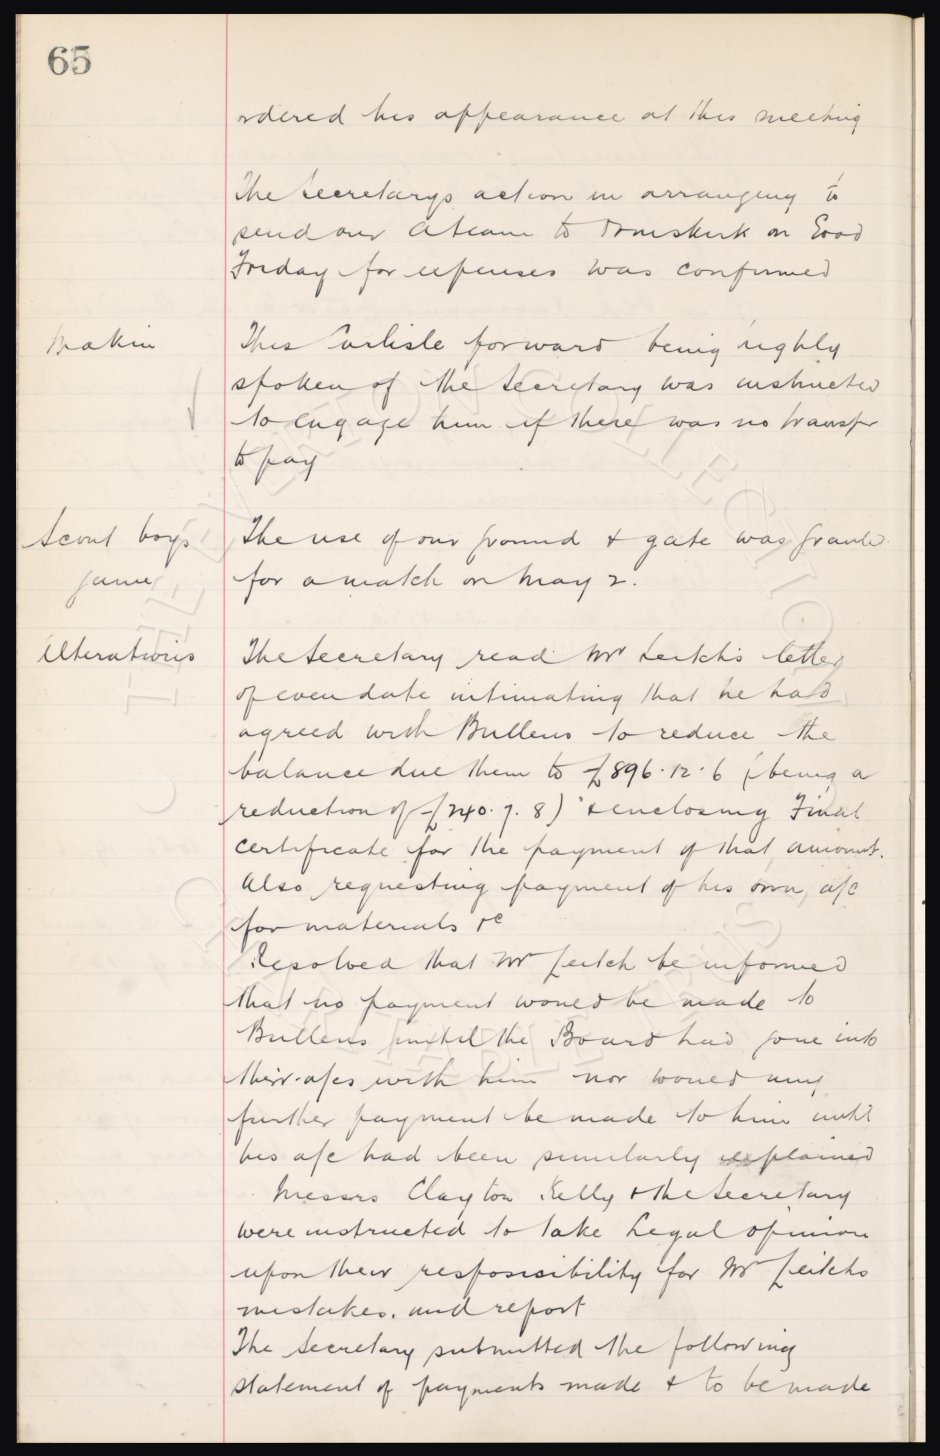 65
ordered his appearance at this meeting
The Secretarys action in arranging to
send our A team to Ormskirk on Good
Friday for expenses was confirmed
Makin
This Carlisle forward being highly
spoken of the Secretary was instructed
to engage him if there was no transfer
to pay
Scout boys
game
The use of our ground & gate was granted
for a match on May 2.
Alterations
The Secretary read Mr Leitch's letter
of even date intimating that he had
agreed with Bullens to reduce the
balance due them to £896.12.6 (being a
reduction of £240.7.8) & enclosing Final
certificate for the payment of that amount.
Also requesting payment of his own a/c
for materials &c
Resolved that Mr Leitch be informed
that no payment would be made to
Bullens until the Board had gone into
their a/cs with him nor would any
further payment be made to him until
his a/c had been similarly explained
Messrs Clayton Kelly & the Secretary
were instructed to take Legal opinion
upon their resposisibility for Mr Leitchs
mistakes. and report
The Secretary submitted the following
statement of payments made & to be made
THE EVERTON COLLECTION